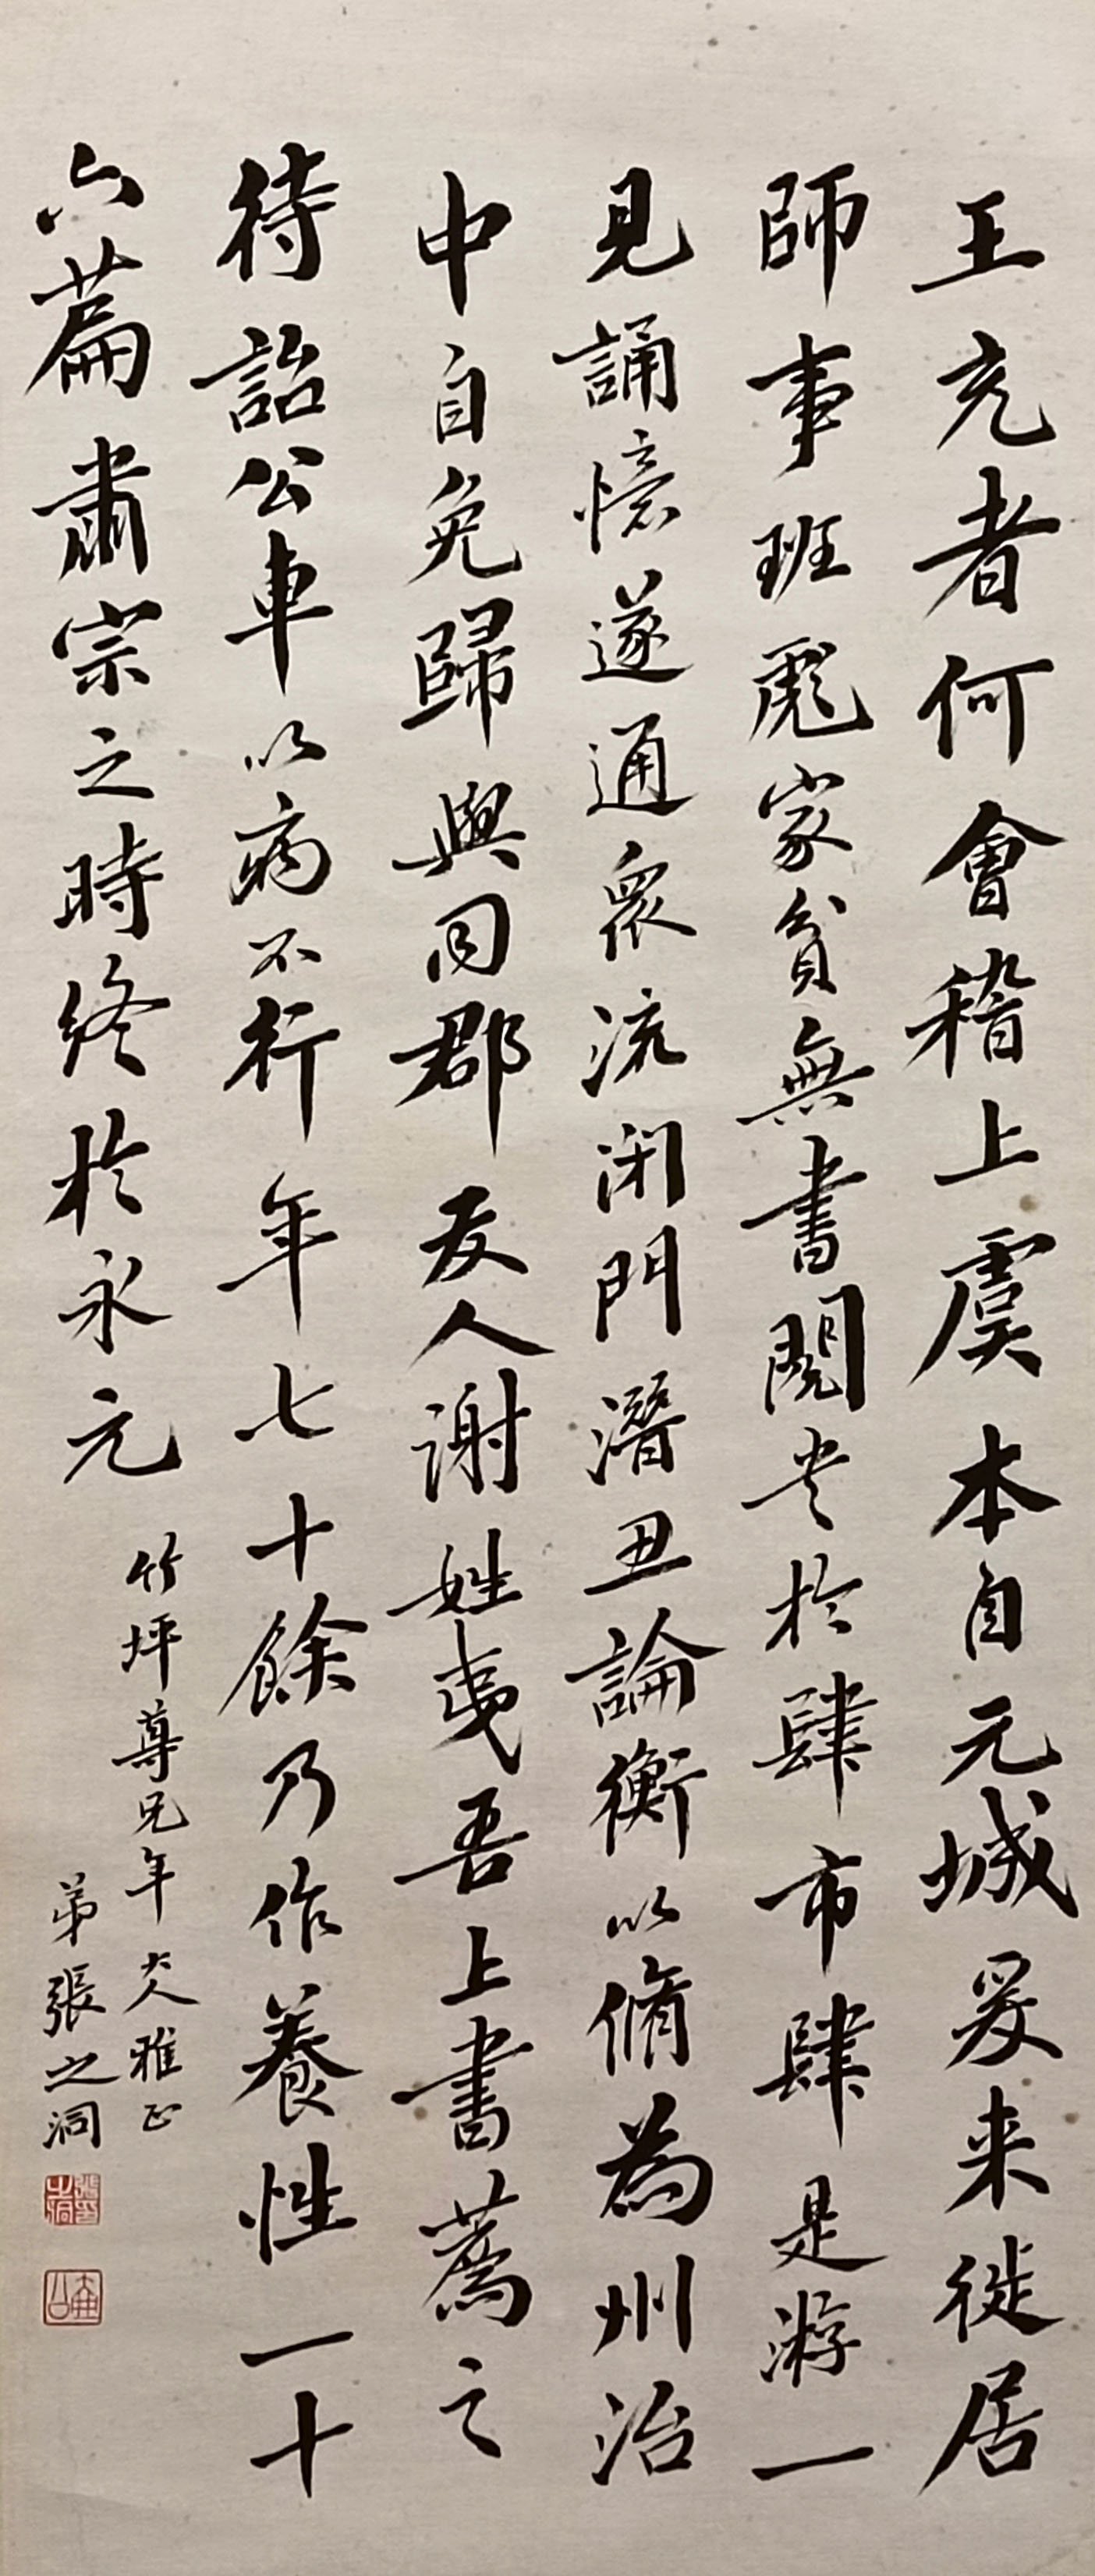 王充者何會稽上虞本自元城爰来徙居
師事班彪家貧無書閱书於肆市肆是游一
見誦憶遂通衆流閉門潛丑論衡以脩為州治
中自免歸與同郡友人謝姓夷吾上書薦之
待詔公車以病不行年七十餘乃作養性一十
六篇肅宗之時終於永元
竹坪尊兄年大人雅正
弟張之洞